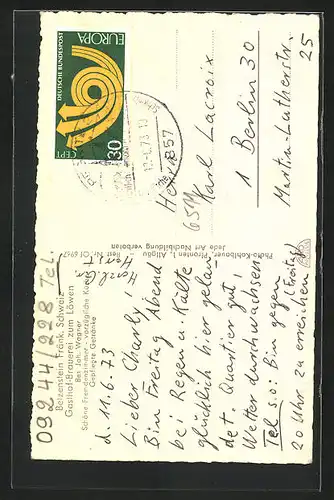 09244/228 Tel.
Betzenstein Fränk. Schweiz
Gasthof-Brauerei zum Löwen
Bes. Joh. Wagner
Schöne Fremdenzimmer - vorzügliche Küche
Gepflegte Getränke
d. 11.6.73
Lieber Charly!
Bin Freitag Abend
bei Regen u. Kälte
glücklich hier gelan-
det. Quartier gut,
Wetter durchwachsen
Tel s.o: Bin gegen
20 Uhr zu erreichen
(Freitag)
Herzl. Gr.
Phdre-Kohlbauer, Pfronten i. Allgäu
Jede Art Nachbildung verboten
DEUTSCHE BUNDESPOST
EUROPA
CEPT
30
12.-6.73
857
Herrn
Karl Lacroix
1 Berlin 30
Martin-Lutherstr.
25